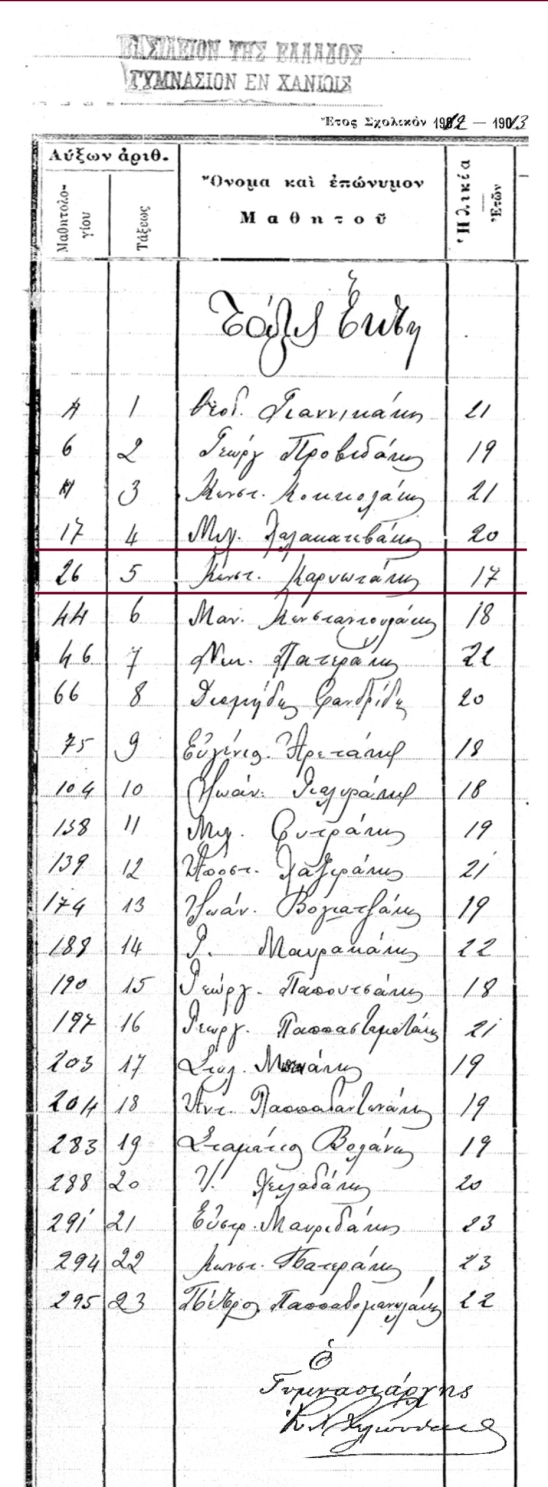 ΒΑΣΙΛΕΙΟΝ ΤΗΣ ΕΛΛΑΔΟΣ
ΓΥΜΝΑΣΙΟΝ ΕΝ ΧΑΝΙΟΙΣ
Ἔτος Σχολικὸν 1912 — 1913
Αὔξων ἀριθ.
Μαθητολογίου
Τάξεως
Ὄνομα καὶ ἐπώνυμον
Μαθητοῦ
Ἡλικία
Ἐτῶν
Τάξις Ἕκτη
1 Θεοδ. Γιαννικάκης 21
6 2 Γεώργ Προβιδάκης 19
3 Κωνστ. Κοκκολάκης 21
17 4 Μιχ. 20
26 5 Κωνστ. Καρυωτάκης 17
44 6 Μαν. Κωνσταντουλάκης 18
46 7 Νικ. Πατεράκης 22
66 8 Διομήδης 20
75 9 Εὐγένιος Ἀρετάκης 18
104 10 Ἰωάν. 18
138 11 Μιχ. 19
139 12 21
174 13 Ἰωάν. Βογιατζάκης 19
188 14 Μαυρακάκης 22
190 15 Γεώργ. Παπουτσάκης 18
197 16 Γεωργ. Παππασταματάκης 21
203 17 19
204 18 Ἀντ. Παππαδαντωνάκης 19
283 19 Σταμάτιος Βολάνης 19
288 20 20
291 21 Εὐστρ. Μαυριδάκης 23
294 22 Κωνστ. Πατεράκης 23
295 23 Πέτρος Παππαδομανωλάκης 22
Ὁ
Γυμνασιάρχης